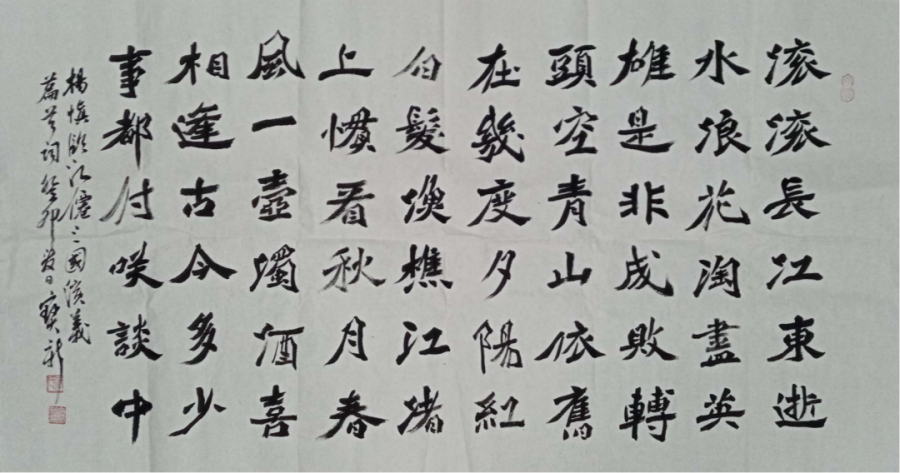 滚滚長江東逝
水浪花淘盡英
雄是非成敗轉
頭空青山依舊
在幾度夕陽紅
白髮渔樵江渚
上慣看秋月春
風一壺濁酒喜
相逢古今多少
事都付咲談中
楊慎臨江僊三國演義
篇首詞癸卯夏日寶新